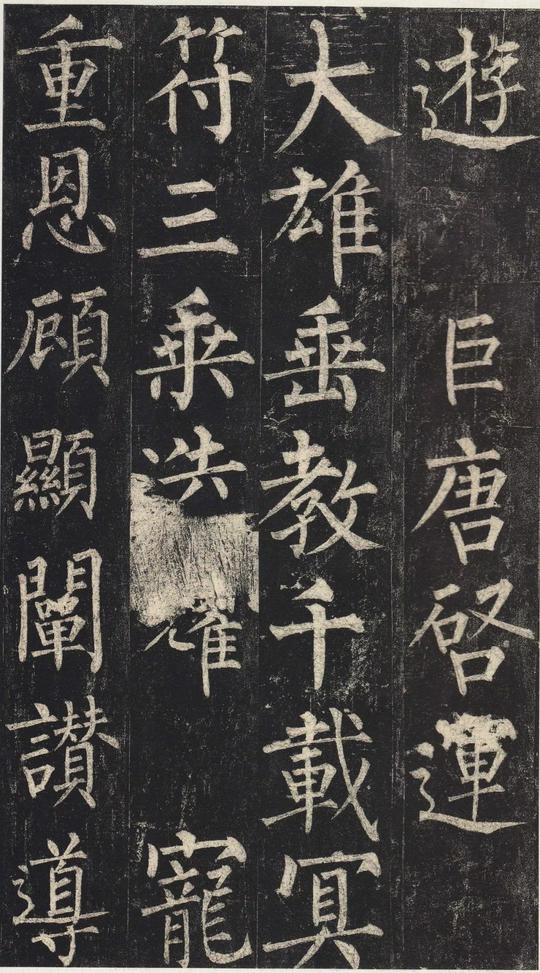 遊 巨唐啓運
大雄垂教千載冥
符三乗迭耀 寵
重恩顧顯闡讃導